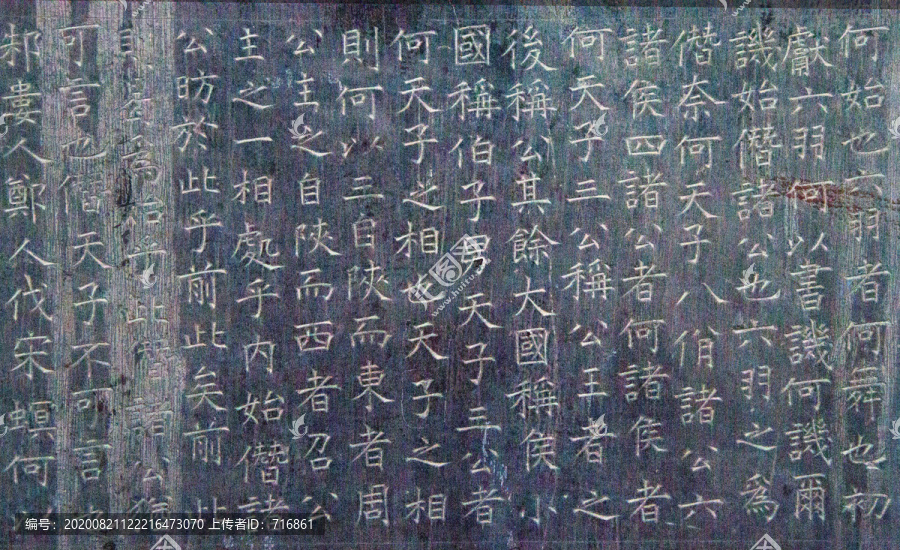 何始也六羽者何舞也初
獻六羽何以書譏何譏爾
譏始僭諸公也六羽之爲
僭奈何天子八佾諸公六
諸侯四諸公者何諸侯者
何天子三公稱公王者之
後稱公其餘大國稱侯小
國稱伯子男天子三公者
何天子之相也天子之相
則何以三自陝而東者周
公主之自陝而西者召公
主之一相處乎内始僭諸
公昉於此乎前此矣前此
則曷爲始乎此僭諸公猶
可言也僭天子不可言
邾婁人鄭人伐宋螟何
编号：20200821122216473070 上传者ID：716861